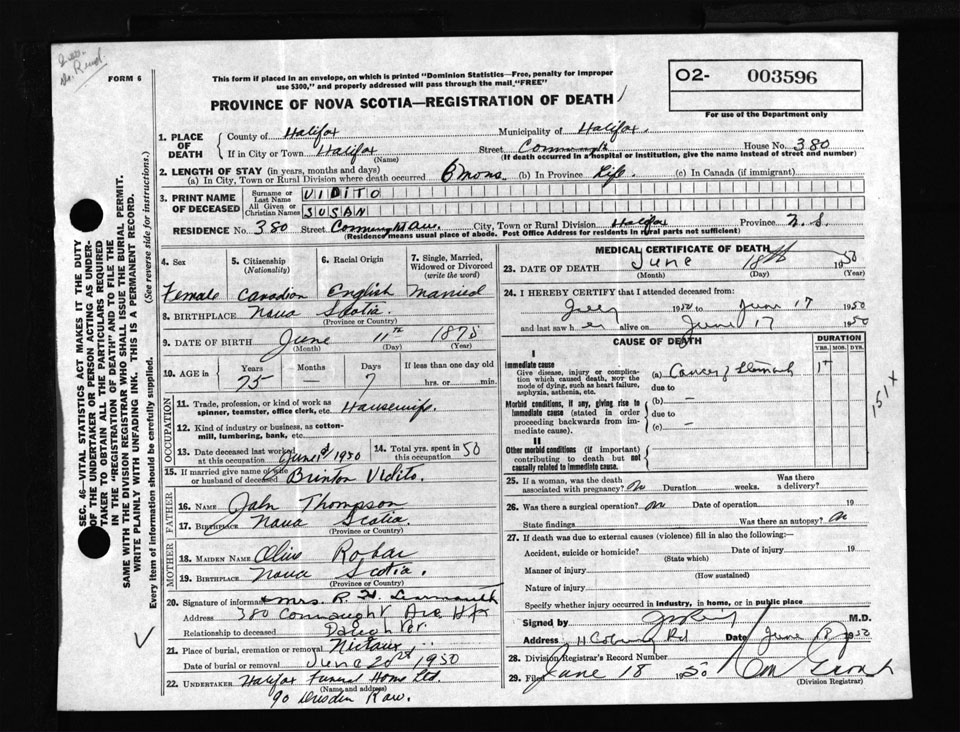 FORM 6
This form if placed in an envelope, on which is printed "Dominion Statistics—Free, penalty for improper
use $300," and properly addressed will pass through the mail "FREE"
PROVINCE OF NOVA SCOTIA—REGISTRATION OF DEATH
O2- 003596
For use of the Department only
SEC. 46—VITAL STATISTICS ACT MAKES IT THE DUTY
OF THE UNDERTAKER OR PERSON ACTING AS UNDER-
TAKER TO OBTAIN ALL THE PARTICULARS REQUIRED
IN THE "REGISTRATION OF DEATH" AND TO FILE THE
SAME WITH THE DIVISION REGISTRAR WHO SHALL ISSUE THE BURIAL PERMIT.
WRITE PLAINLY WITH UNFADING INK. THIS IS A PERMANENT RECORD.
Every item of information should be carefully supplied. (See reverse side for instructions.)
1. PLACE OF DEATH
County of Halifax Municipality of Halifax.
If in City or Town Halifax Street Connaught House No. 380
(Name) (If death occurred in a hospital or institution, give the name instead of street and number)
2. LENGTH OF STAY (in years, months and days)
(a) In City, Town or Rural Division where death occurred 6 mons. (b) In Province Life. (c) In Canada (if immigrant)
3. PRINT NAME OF DECEASED
Surname or Last Name VIDITO
All Given or Christian Names SUSAN
RESIDENCE No. 380 Street Connaught Ave. City, Town or Rural Division Halifax Province N.S
(Residence means usual place of abode. Post Office Address for residents in rural parts not sufficient)
4. Sex 5. Citizenship (Nationality) 6. Racial Origin 7. Single, Married, Widowed or Divorced (write the word)
Female Canadian English Married
8. BIRTHPLACE Nova Scotia
(Province or Country)
9. DATE OF BIRTH June 11th 1875
(Month) (Day) (Year)
10. AGE in Years Months Days If less than one day old
75 — 7 hrs. or min.
OCCUPATION
11. Trade, profession, or kind of work as
spinner, teamster, office clerk, etc. Housewife.
12. Kind of industry or business, as cotton-
mill, lumbering, bank, etc.
13. Date deceased last worked at this occupation June 1st 1950 14. Total yrs. spent in this occupation 50
15. If married give name of wife
or husband of deceased Brinton Vidito.
FATHER
16. NAME John Thompson
17. BIRTHPLACE Nova Scotia
(Province or Country)
MOTHER
18. MAIDEN NAME Olive
19. BIRTHPLACE Nova Scotia.
(Province or Country)
20. Signature of informant Mrs. R. H.
Address 380 Connaught Ave Hfx
Relationship to deceased Daughter.
21. Place of burial, cremation or removal Nictaux
Date of burial or removal June 20th 1950
22. UNDERTAKER Halifax Funeral Home Ltd.
(Name and address)
90 Dresden Row.
MEDICAL CERTIFICATE OF DEATH
23. DATE OF DEATH June 18th 1950
(Month) (Day) (Year)
24. I HEREBY CERTIFY that I attended deceased from:
1950 to June 17 1950
and last saw h er alive on June 17 1950
CAUSE OF DEATH
DURATION
YRS. MOS. DYS.
I
Immediate cause
Give disease, injury or compli-
cation which caused death, NOT the
mode of dying, such as heart failure,
asphyxia, asthenia, etc.
(a) Cancer of Stomach
due to
Morbid conditions, if any, giving rise to
immediate cause (stated in order
proceeding backwards from im-
mediate cause).
(b) —
due to
(c) —
II
Other morbid conditions (if important)
contributing to death but not
causally related to immediate cause.
151 x
25. If a woman, was the death
associated with pregnancy? no Duration weeks. Was there a delivery?
26. Was there a surgical operation? no Date of operation 19
State findings Was there an autopsy? no
27. If death was due to external causes (violence) fill in also the following:—
Accident, suicide or homicide? Date of injury 19
(State which)
Manner of injury
(How sustained)
Nature of injury
Specify whether injury occurred in industry, in home, or in public place
Signed by M.D.
Address Coburg Rd Date June 18 1950
28. Division Registrar's Record Number
29. Filed June 18 1950
(Division Registrar)